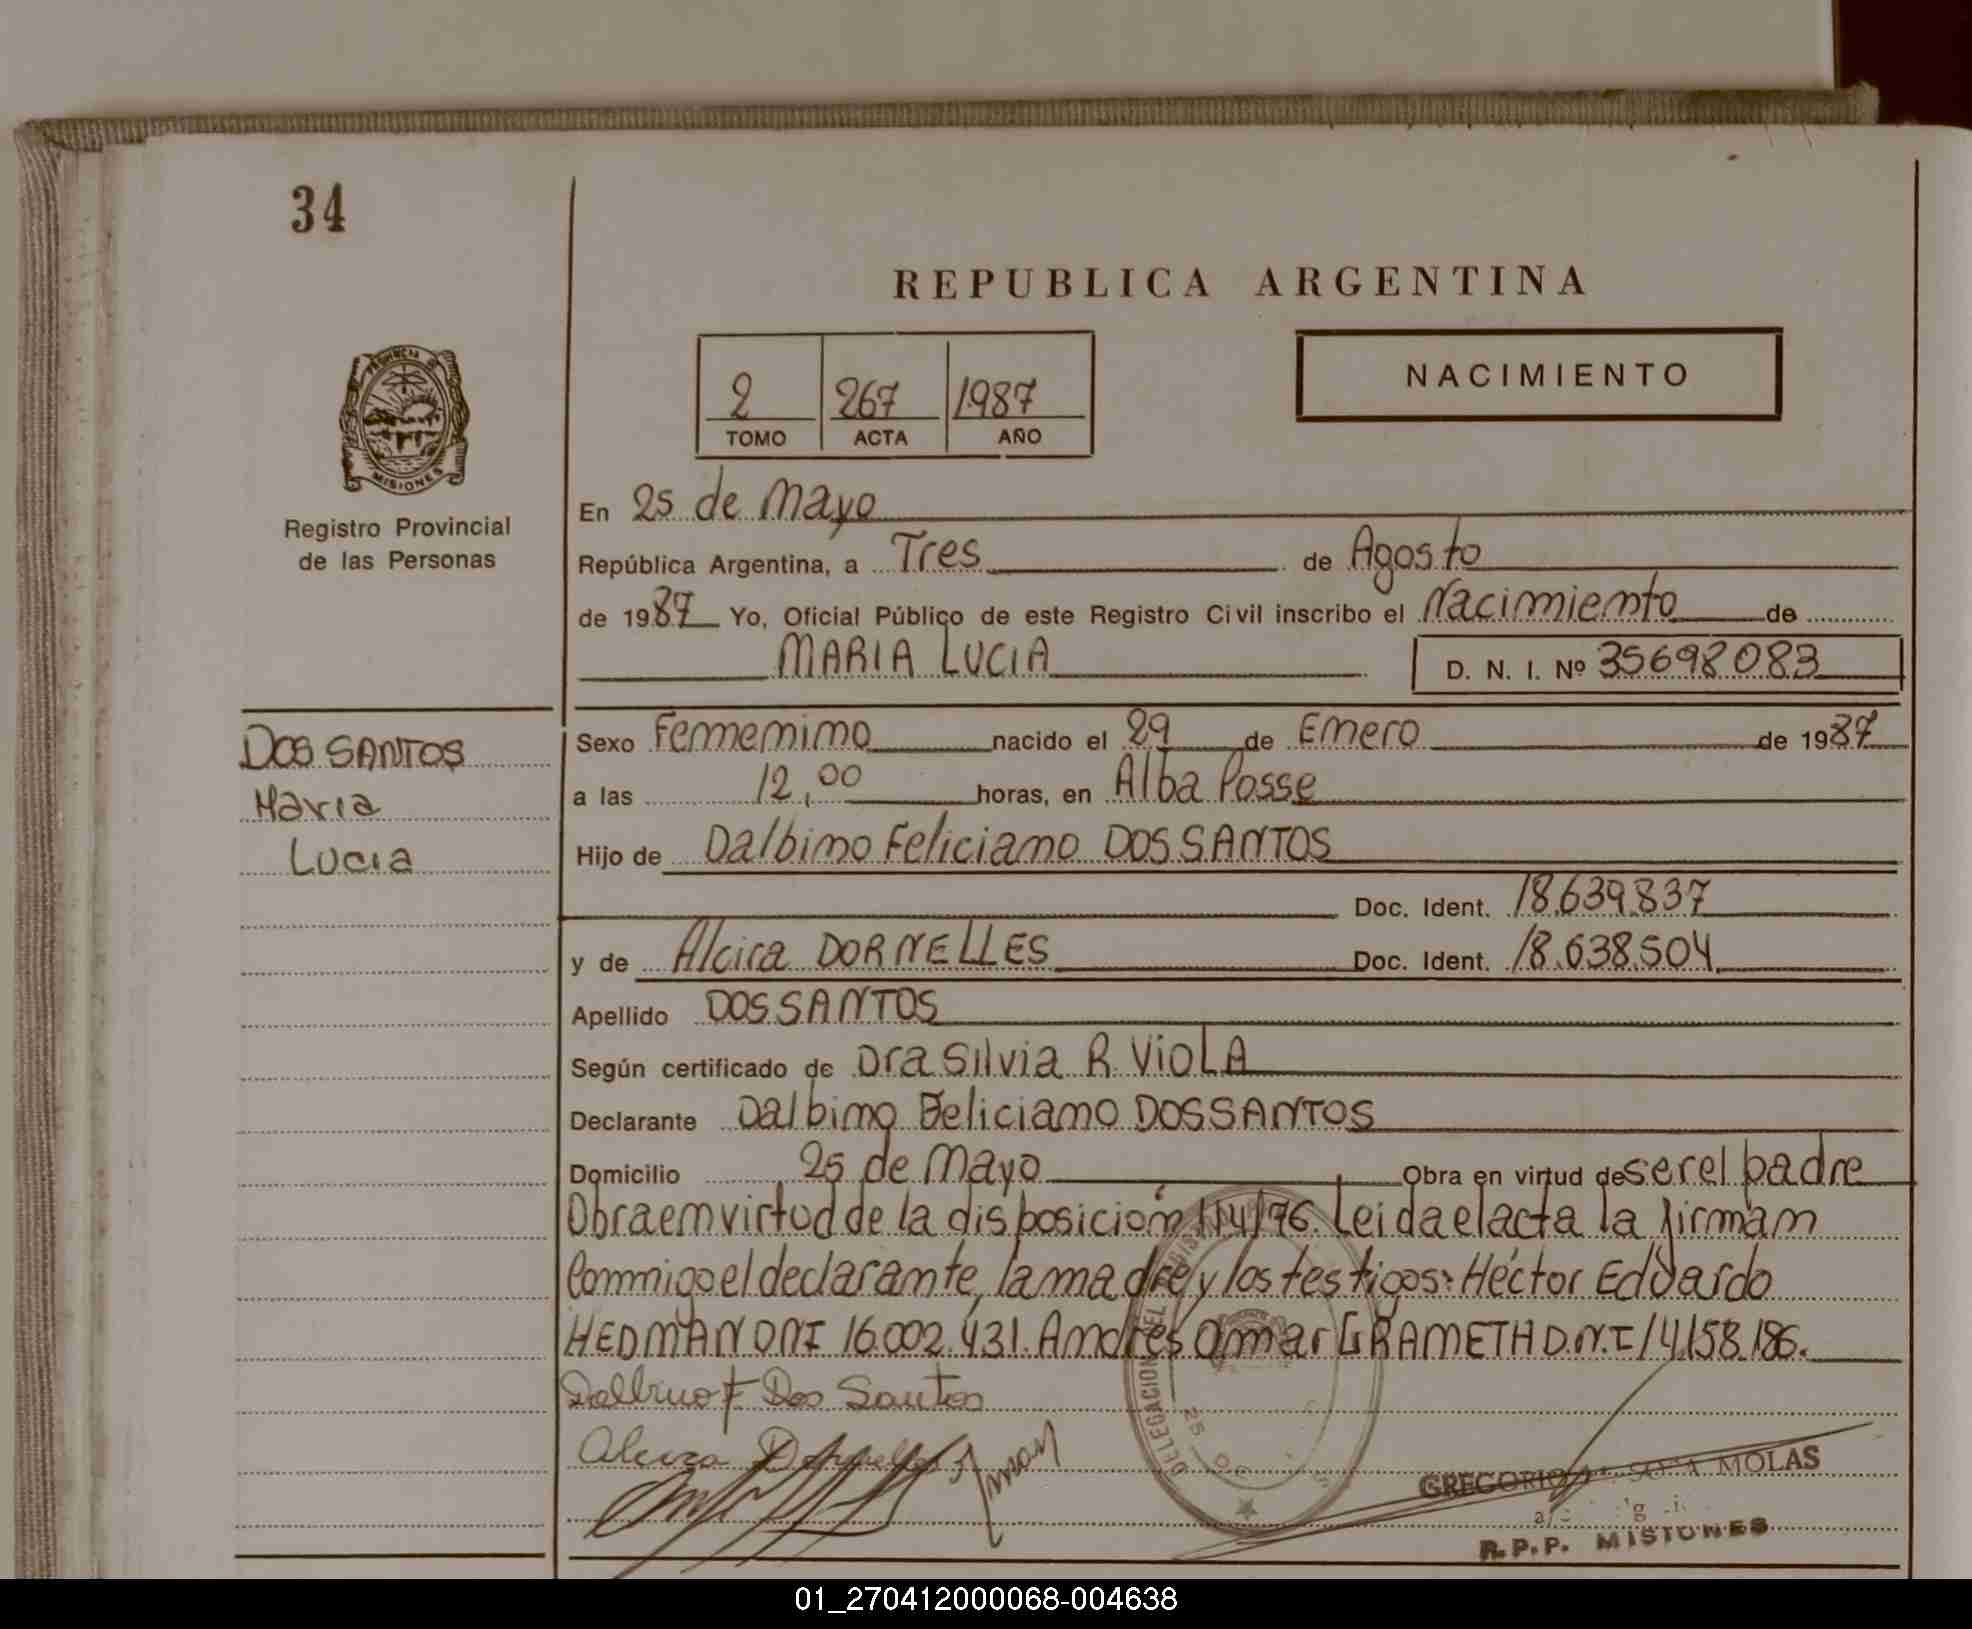 34
REPUBLICA ARGENTINA
2 267 1987
TOMO ACTA AÑO
NACIMIENTO
PROVINCIA DE
MISIONES
Registro Provincial
de las Personas
En 25 de Mayo
República Argentina, a Tres de Agosto
de 1987 Yo, Oficial Público de este Registro Civil inscribo el Nacimiento de
MARIA LUCIA D. N. I. Nº 35698083
DOS SANTOS
Maria
Lucia
Sexo Femenino nacido el 29 de Enero de 1987
a las 12,00 horas, en Alba Posse
Hijo de Dalbino Feliciano DOS SANTOS
Doc. Ident. 18.639.837
y de Alcira DORNELLES Doc. Ident. 18.638.504
Apellido DOS SANTOS
Según certificado de Dra Silvia R. VIOLA
Declarante Dalbino Feliciano DOS SANTOS
Domicilio 25 de Mayo Obra en virtud de ser el padre
Obra en virtud de la disposición 114/76. Leida el acta la firman
Conmigo el declarante, la madre y los testigos: Héctor Eduardo
HEDMAN DNI 16.002.431. Andrés Omar GRAMETH D.N.I 14.158.186.
Dalbino F. Dos Santos
Alcira Dornelles
DELEGACION DEL REGISTRO
25 DE
GREGORIO SOSA MOLAS
R.P.P. MISIONES
01_270412000068-004638